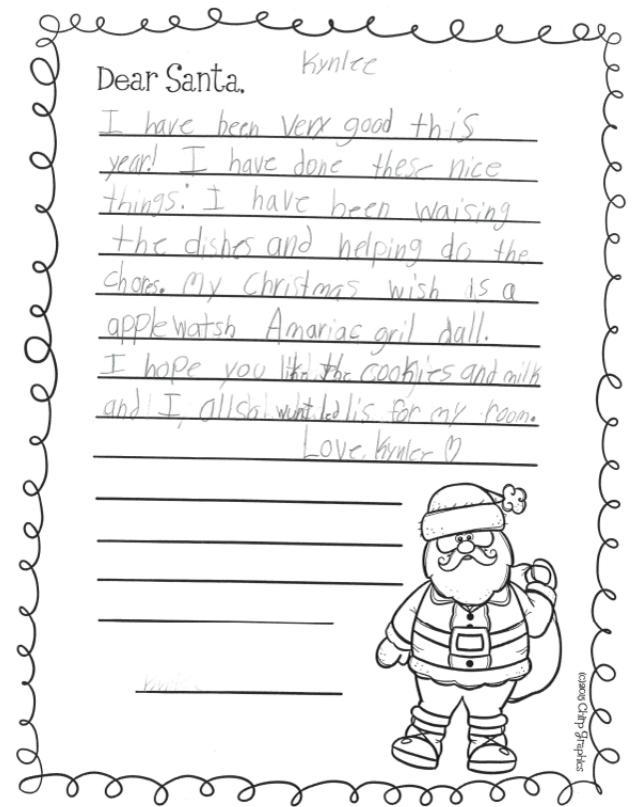 Kynlee
Dear Santa,
I have been very good this
year! I have done these nice
things: I have been waising
the dishes and helping do the
chores. My Christmas wish is a
apple watsh Amariac gril dall.
I hope you like the cookies and milk
and I, allso wunt led lis for my room.
Love, Kynlee ♡
(c)2015 Chirp Graphics